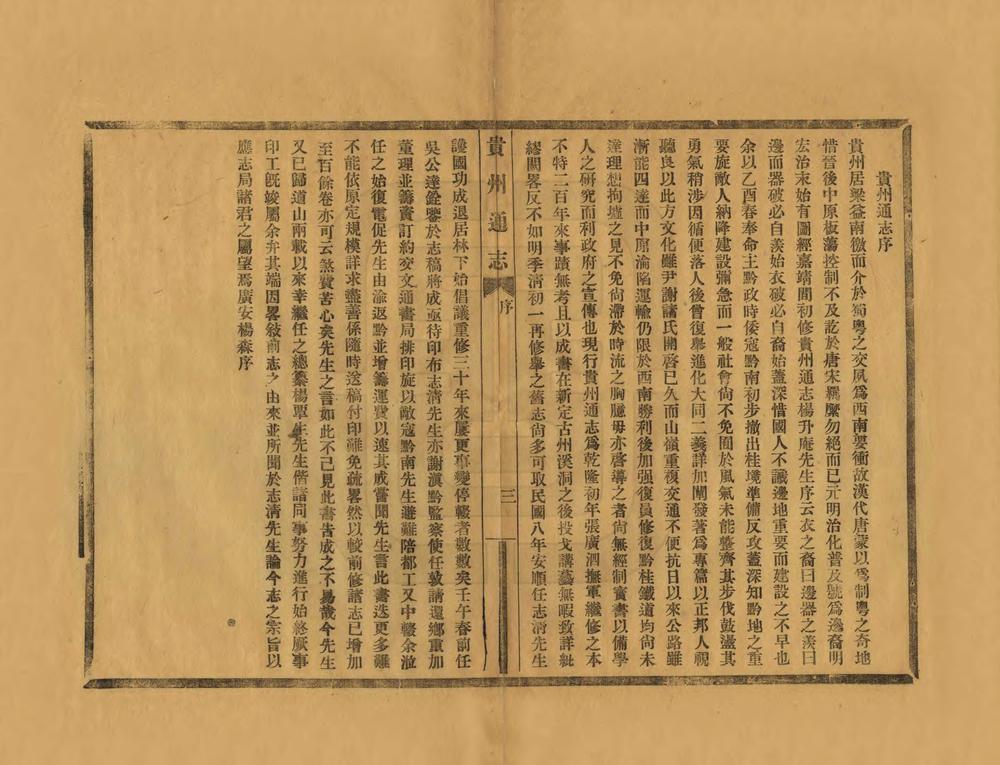 貴州通志序
貴州居梁益南徼而介於蜀粵之交夙爲西南要衝故漢代唐蒙以爲制粵之奇地
惜晉後中原板蕩控制不及訖於唐宋羈縻勿絕而已元明治化普及號爲邊裔明
宏治末始有圖經嘉靖間初修貴州通志楊升庵先生序云衣之裔曰邊器之羨曰
邊而器破必自羨始衣破必自裔始蓋深惜國人不識邊地重要而建設之不早也
余以乙酉春奉命主黔政時倭寇黔南初步撤出桂境準備反攻蓋深知黔地之重
要旋敵人納降建設彌急而一般社會尙不免囿於風氣未能整齊其步伐鼓盪其
勇氣稍涉因循便落人後曾復舉進化大同二義詳加闡發著爲專篇以正邦人視
聽良以此方文化雖尹謝諸氏開啓已久而山嶺重複交通不便抗日以來公路雖
漸能四達而中原淪陷運輸仍限於西南勝利後加强復員修復黔桂鐵道均尙未
達理想拘墟之見不免尙滯於時流之胸臆毋亦啓導之者尙無經制實書以備學
人之硏究而利政府之宣傳也現行貴州通志爲乾隆初年張廣泗撫軍繼修之本
不特二百年來事蹟無考且以成書在新定古州溪洞之後投戈講藝無暇致詳紕
繆闕畧反不如明季清初一再修舉之舊志尙多可取民國八年安順任志清先生
護國功成退居林下始倡議重修三十年來屢更事變停輟者數數矣壬午春前任
吳公達銓鑒於志稿將成亟待印布志清先生亦謝滇黔監察使任敦請還鄉重加
董理並籌資訂約交文通書局排印旋以敵寇黔南先生避難陪都工又中輟余涖
任之始復電促先生由渝返黔並增籌運費以速其成嘗聞先生言此書迭更多難
不能依原定規模詳求盡善係隨時送稿付印難免疏畧然以較前修諸志已增加
至百餘卷亦可云煞費苦心矣先生之言如此不已見此書告成之不易哉今先生
又已歸道山兩載以來幸繼任之總纂楊覃生先生偕諸同事努力進行始終厥事
印工旣竣屬余弁其端因畧敍前志之由來並所聞於志清先生論今志之宗旨以
應志局諸君之屬望焉廣安楊森序
貴州通志
序
三